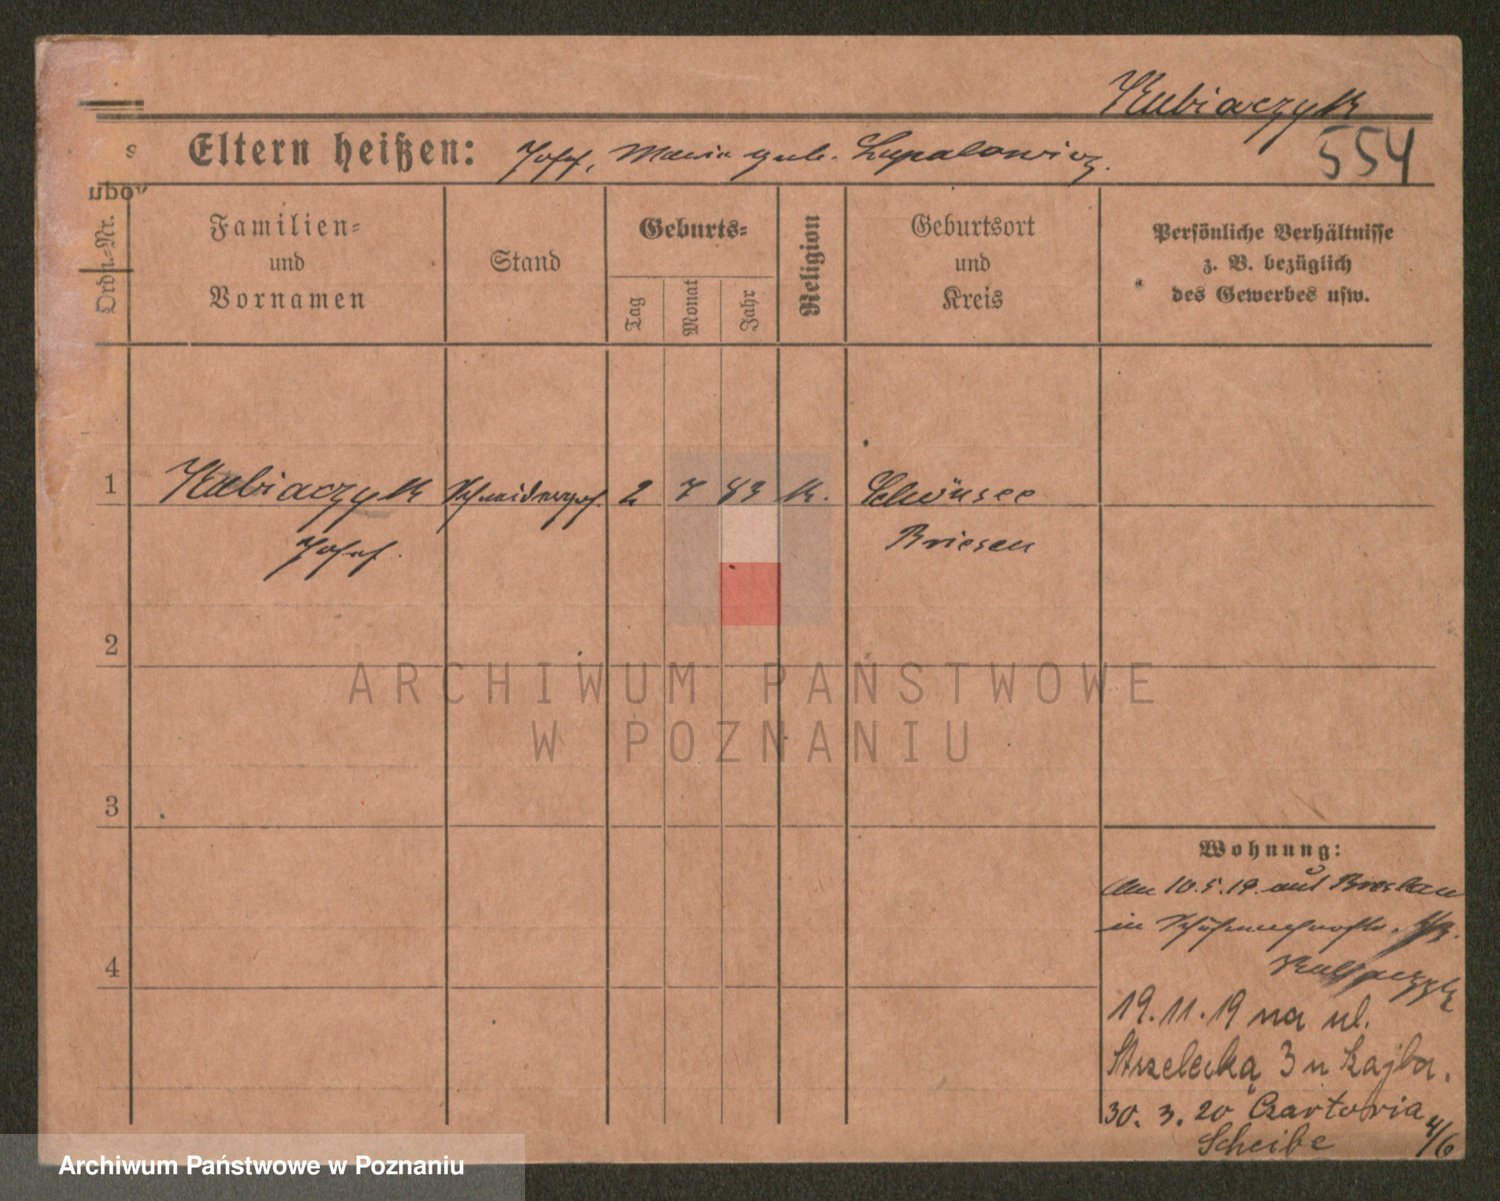 Kubiaczyk
554
Eltern heißen: Josef, Maria geb. Lupalowicz.
Ordn.-Nr.
Familien-
und
Vornamen
Stand
Geburts-
Tag
Monat
Jahr
Religion
Geburtsort
und
Kreis
Persönliche Verhältnisse
z. B. bezüglich
des Gewerbes usw.
1 Kubiaczyk Schneiderges. 2 7 83 k. Schönsee
Josef. Briesen
2
3
4
ARCHIWUM PAŃSTWOWE
W POZNANIU
Wohnung:
Am 10.5.19. aus Breslau
in
19.11.19 na ul.
Strzelecką 3 u Szajba.
30. 3. 20 Czartoria 4/6
Scheibe
Archiwum Państwowe w Poznaniu